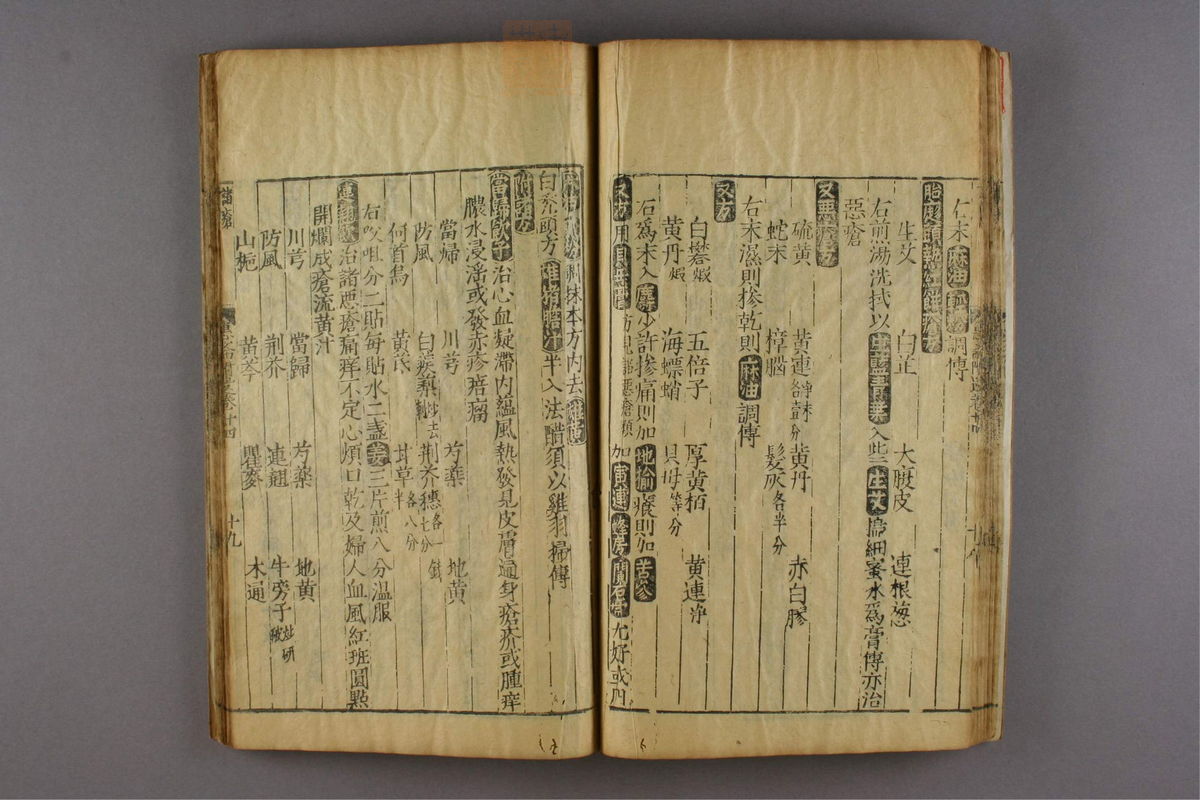 仁末麻油調傅
生艾 白芷 大腹皮 連根葱
右煎湯洗拭以 入些生艾 細蜜水爲膏傅亦治
惡瘡
又惡瘡方
硫黄 黄連 黄丹 赤白膠
蛇末 樟腦 髪灰各半分
右末濕則掺乾則麻油調傅
又方
白礬煅 五倍子 厚黄栢 黄連浄
黄丹煅 海螵蛸 貝母等分
石爲末入麝少許掺痛則加地榆癢則加苦參
又方用 加黄連蜂房 尤好或丹
調抹本方内去雄黄
白禿頭方雄猪膽汁半入法醋須以雞羽掃傅
附頭方
當歸飲子治心血疑滯内蘊風熱發見皮膚遍身瘡疥或腫痒
膿水浸淫或發赤疹㾦瘤
當歸 川芎 芍藥 地黄
防風 白蒺藜炒去 荆芥穗各一 錢
何首烏 黄芪 甘草半 各八分
右㕮咀分二貼每貼水二盞姜三片煎八分温服
治諸惡瘡痛痒不定心煩口乾及婦人血風紅班圓點
開爛成瘡流黄汁
川芎 當歸 芍藥 地黄
防風 荆芥 連翹 牛旁子炒研
山梔 黄芩 瞿麥 木通
諸瘡
十九